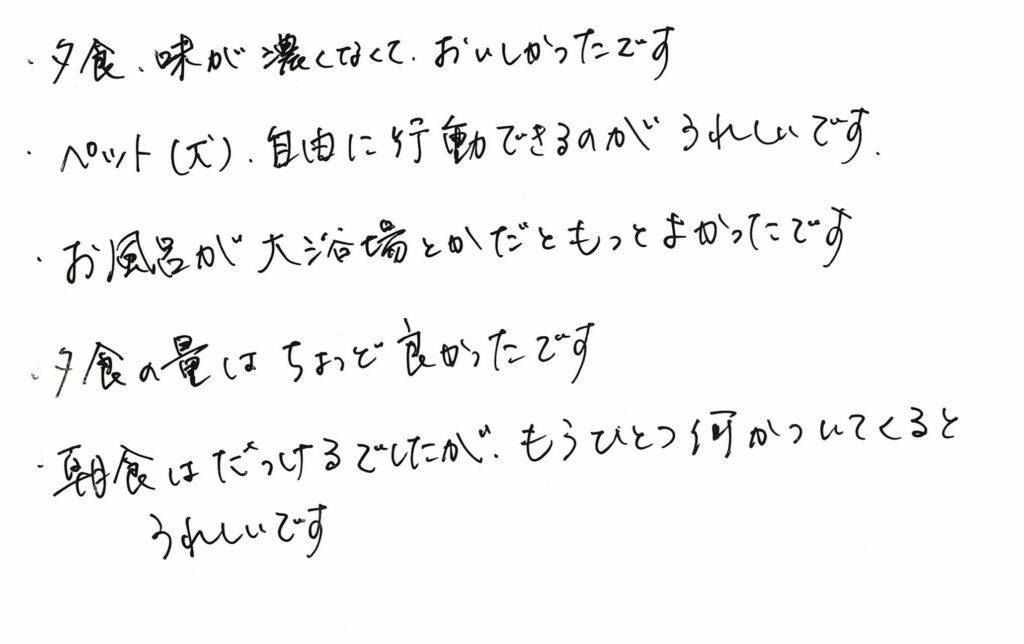 ・夕食、味が濃くなくて、おいしかったです
・ペット(犬)、自由に行動できるのがうれしいです.
・お風呂が大浴場とかだともっとよかったです
・夕食の量はちょっど良かったです
・朝食はだっけるでしたが、もうひとつ何かついてくると
うれしいです